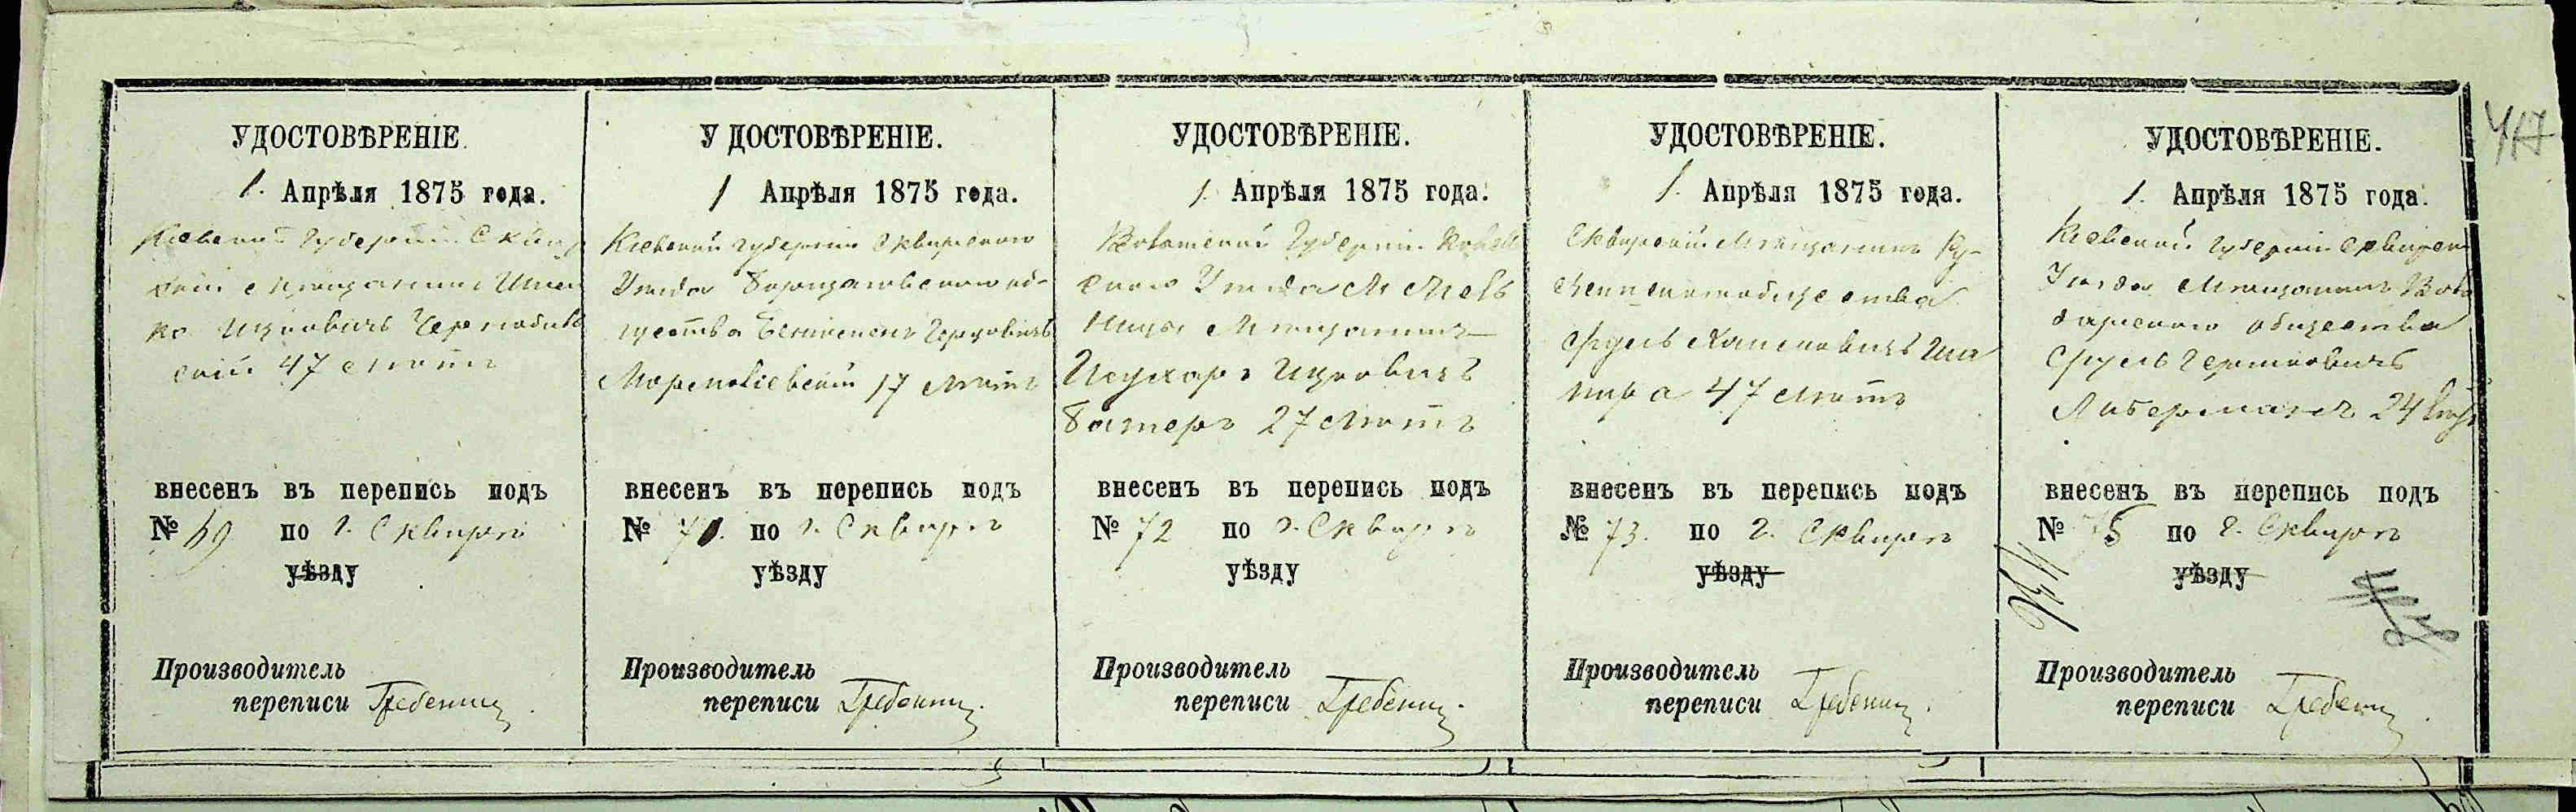 УДОСТОВѢРЕНІЕ.
1. Апрѣля 1875 года.
Кіевской Губерніи Сквир
скій Мѣщанинъ Шмел
ко Ицковичъ Чернобыль
скій 47 лѣтъ
внесенъ въ перепись подъ
№ 69 по г. Сквирѣ
уѣзду
Производитель
переписи
УДОСТОВѢРЕНІЕ.
1 Апрѣля 1875 года.
Кіевской губерніи Сквирскаго
Уѣзда об-
щества Герцовичъ
17 лѣтъ
внесенъ въ перепись подъ
№ 71. по г. Сквирѣ
уѣзду
Производитель
переписи
УДОСТОВѢРЕНІЕ.
1. Апрѣля 1875 года.
Волынской Губерніи Ковел
скаго Уѣзда М. Мель
ницы Мѣщанинъ
Ицковичъ
27 лѣтъ
внесенъ въ перепись подъ
№ 72 по г. Сквирѣ
уѣзду
Производитель
переписи
УДОСТОВѢРЕНІЕ.
1. Апрѣля 1875 года.
Сквирскій Мѣщанинъ
общества
Сруль Хаимовичъ Ша
пира 47 лѣтъ
внесенъ въ перепись подъ
№ 73. по г. Сквирѣ
уѣзду
Производитель
переписи
УДОСТОВѢРЕНІЕ.
1. Апрѣля 1875 года.
Кіевской Губерніи Сквирск
Уѣзда Мѣщанинъ Воло
дарскаго общества
Сруль Гершковичъ
Либерманъ 24
внесенъ въ перепись подъ
№ 75 по г. Сквирѣ
уѣзду
Производитель
переписи